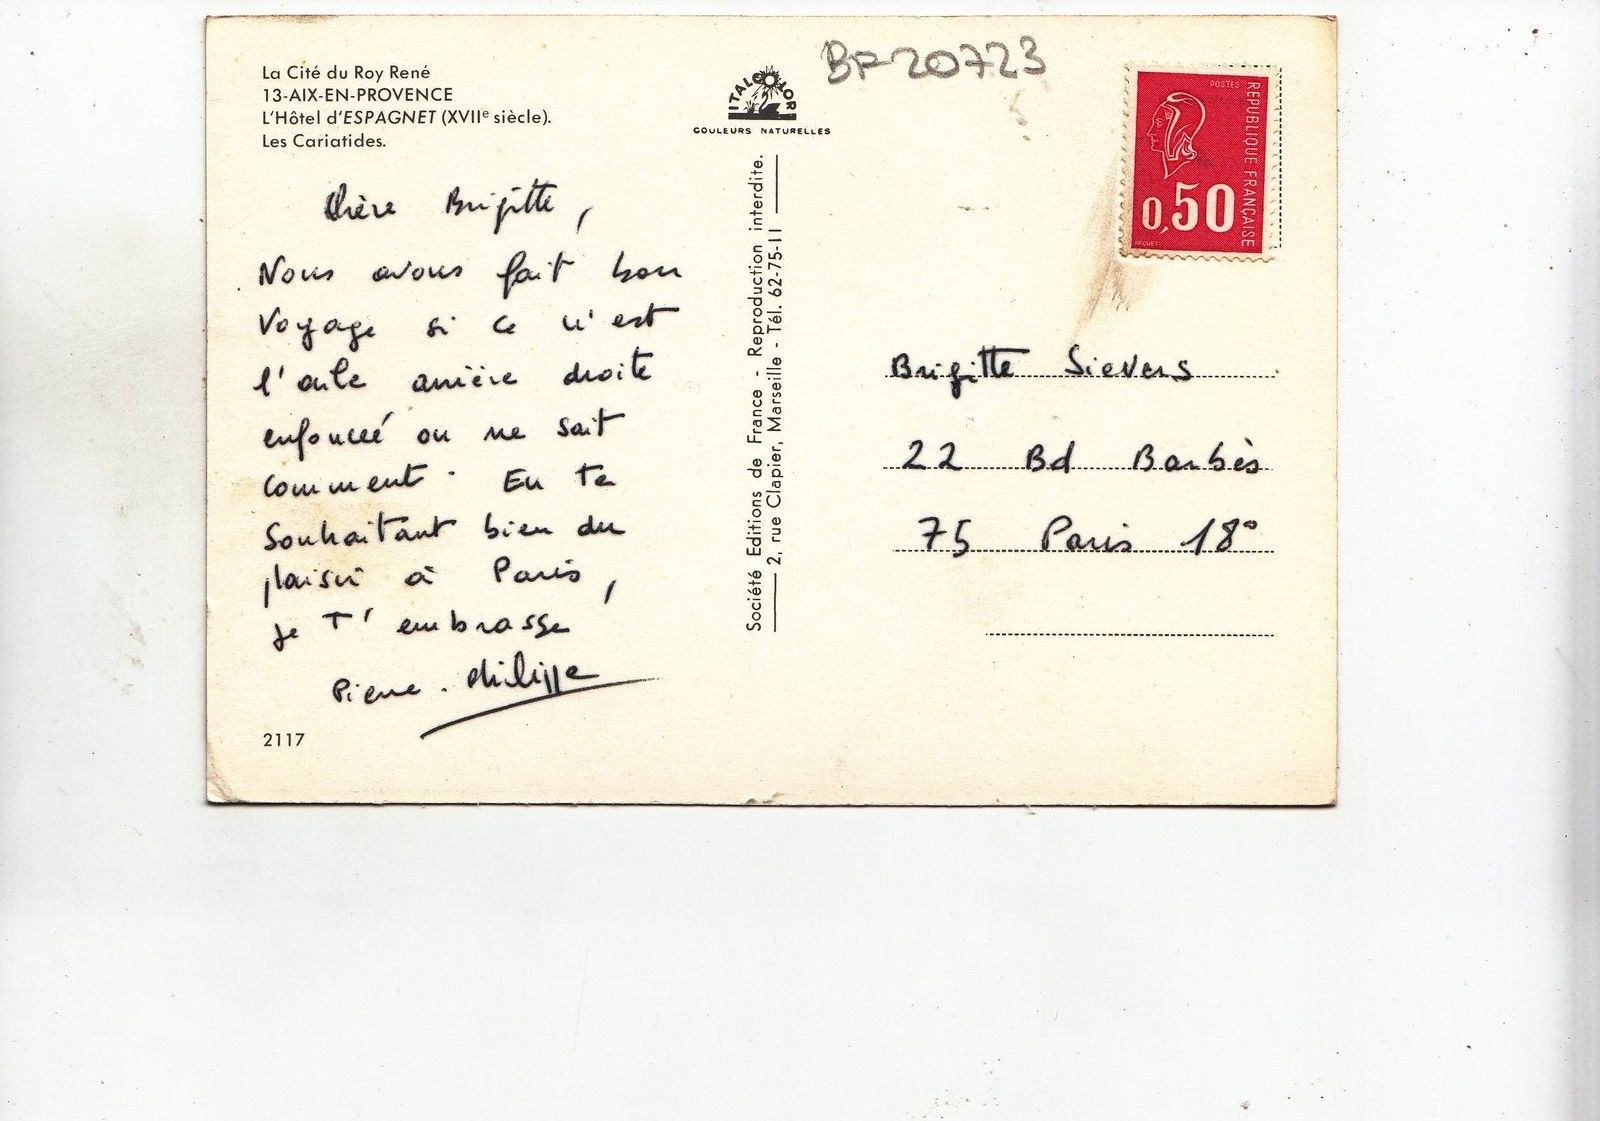 La Cité du Roy René
13-AIX-EN-PROVENCE
L'Hôtel d'ESPAGNET (XVIIe siècle).
Les Cariatides.
Chère Brigitte,
Nous avons fait bon
voyage si ce n'est
l'aile arrière droite
enfoncée on ne sait
comment. En te
souhaitant bien du
plaisir à Paris,
je t'embrasse
Pierre-Philippe
2117
ITALCOLOR
COULEURS NATURELLES
Société Editions de France - Reproduction interdite.
2, rue Clapier, Marseille - Tél. 62-75-11
BP 20723
POSTES
REPUBLIQUE FRANÇAISE
0,50
BEQUET
Brigitte Sievers
22 Bd Barbès
75 Paris 18°